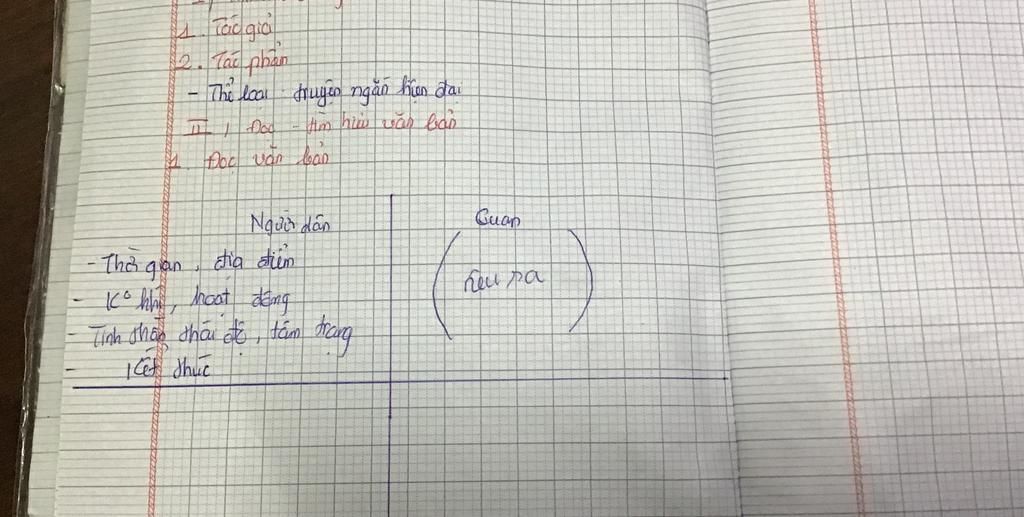 1. Tác giả
2. Tác phẩm
- Thể loại: truyện ngắn hiện đại
II, Đọc - tìm hiểu văn bản
1. Đọc văn bản
Người dân
Quan
- Thời gian, địa điểm
- K° khí, hoạt động
- Tinh thần thái độ, tâm trạng
- Kết thúc
nêu ra